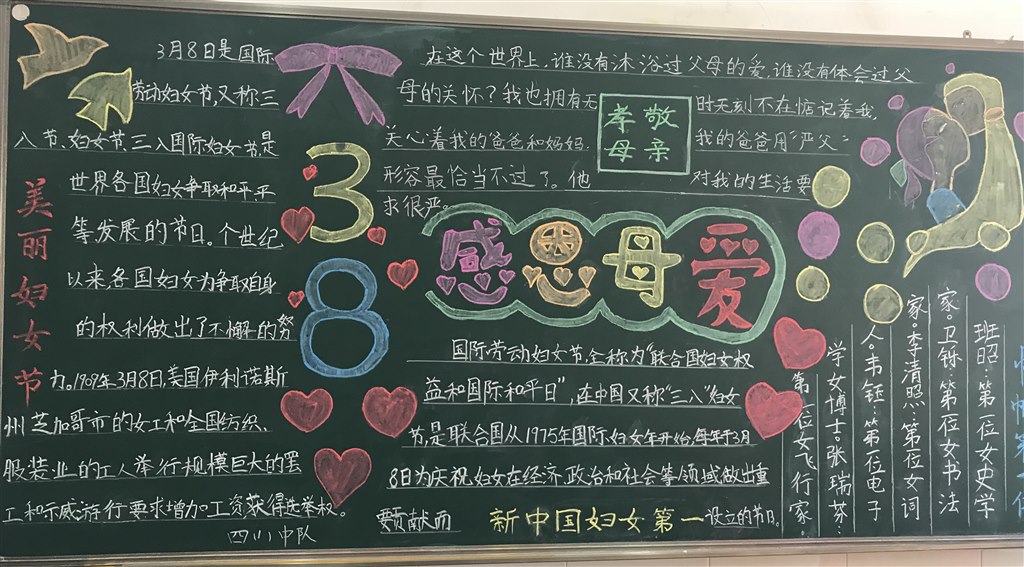 美丽妇女节
3月8日是国际
劳动妇女节,又称三
八节、妇女节、三八国际妇女节,是
世界各国妇女争取和平、平
等、发展的节日。个世纪
以来,各国妇女为争取自身
的权利做出了不懈的努
力。1909年3月8日,美国伊利诺斯
州芝加哥市的女工和全国纺织、
服装业的工人举行规模巨大的罢
工和示威游行,要求增加工资获得选举权。
四川中队
38
在这个世界上,谁没有沐浴过父母的爱,谁没有体会过父
母的关怀?我也拥有无时无刻不在惦记着我,
关心着我的爸爸和妈妈.我的爸爸用“严父”
形容最恰当不过了。他对我的生活要
求很严。
孝敬
母亲
感恩母爱
国际劳动妇女节,全称为“联合国妇女权
益和国际和平日”,在中国又称“三八”妇女
节,是联合国从1975年国际妇女年开始,每年于3月
8日为庆祝妇女在经济、政治和社会等领域做出重
要贡献而
设立的节日。
新中国妇女第一
班昭:第一位女史学
家。卫铄:第一位女书法
家。李清照:第一位女词
人。韦钰:第一位电子
学女博士。张瑞芬:
第一位女飞行家。